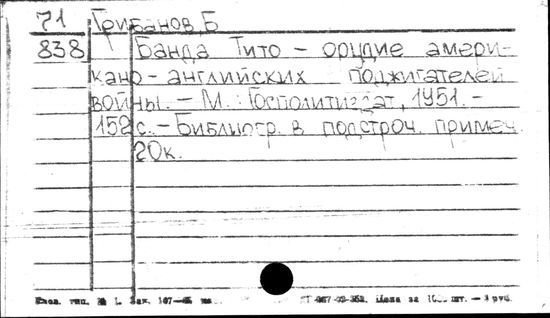 71 Грибанов, Б
838 Банда Тито – орудие амери-
кано-английских поджигателей
войны. – М.: Госполитиздат, 1951. –
152 с. – Библиогр. в подстроч. примеч.
20к.
тип. № 1. Зак. 107— Цена за шт. —